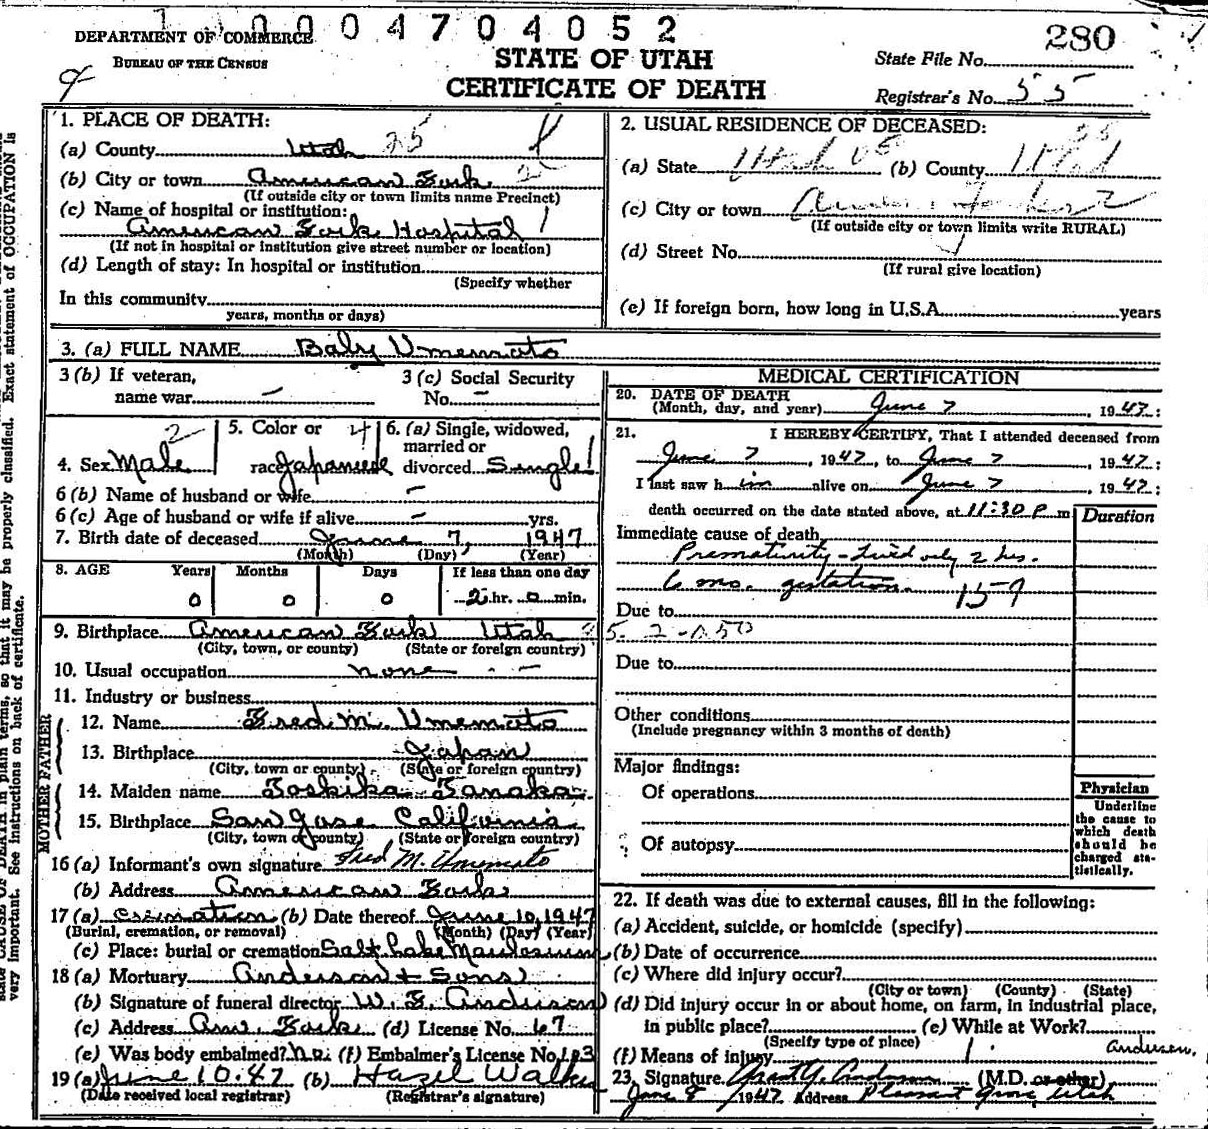 1 0 0 0 4 7 0 4 0 5 2
280
DEPARTMENT OF COMMERCE
BUREAU OF THE CENSUS
STATE OF UTAH
CERTIFICATE OF DEATH
State File No.
Registrar's No. 55
1. PLACE OF DEATH:
(a) County Utah 25
(b) City or town American Fork
(If outside city or town limits name Precinct)
(c) Name of hospital or institution:
American Fork Hospital
(If not in hospital or institution give street number or location)
(d) Length of stay: In hospital or institution
(Specify whether
In this community
years, months or days)
2. USUAL RESIDENCE OF DECEASED:
(a) State Utah (b) County Utah
(c) City or town Amer. Fork
(If outside city or town limits write RURAL)
(d) Street No.
(If rural give location)
(e) If foreign born, how long in U.S.A. years
3. (a) FULL NAME Baby Umemoto
3 (b) If veteran, name war —
3 (c) Social Security No. —
4. Sex Male 2
5. Color or race Japanese 4
6. (a) Single, widowed, married or divorced Single
6 (b) Name of husband or wife —
6 (c) Age of husband or wife if alive — yrs.
7. Birth date of deceased June 7, 1947
(Month) (Day) (Year)
8. AGE Years Months Days If less than one day
0 0 0 2 hr. 0 min.
9. Birthplace American Fork Utah
(City, town, or county) (State or foreign country)
10. Usual occupation none —
11. Industry or business
FATHER
12. Name Fred M. Umemoto
13. Birthplace Japan
(City, town or county) (State or foreign country)
MOTHER
14. Maiden name Toshiko Tanaka
15. Birthplace San Jose California
(City, town or county) (State or foreign country)
16 (a) Informant's own signature Fred M. Umemoto
(b) Address American Fork
17 (a) Cremation (b) Date thereof June 10, 1947
(Burial, cremation, or removal) (Month) (Day) (Year)
(c) Place: burial or cremation Salt Lake Mausoleum
18 (a) Mortuary Anderson & Sons
(b) Signature of funeral director W. E. Anderson
(c) Address Am. Fork (d) License No. 67
(e) Was body embalmed? No. (f) Embalmer's License No. 103
19 (a) June 10-47 (b) Hazel Walker
(Date received local registrar) (Registrar's signature)
MEDICAL CERTIFICATION
20. DATE OF DEATH
(Month, day, and year) June 7, 1947;
21. I HEREBY CERTIFY, That I attended deceased from
June 7, 1947, to June 7, 1947;
I last saw him alive on June 7, 1947;
death occurred on the date stated above, at 11:30 P m
Duration
Immediate cause of death
Prematurity - Lived only 2 hrs.
6 mo. gestation. 159
Due to
Due to
Other conditions
(Include pregnancy within 3 months of death)
Major findings:
Of operations
Of autopsy
Physician
Underline the cause to which death should be charged statistically.
22. If death was due to external causes, fill in the following:
(a) Accident, suicide, or homicide (specify)
(b) Date of occurrence
(c) Where did injury occur?
(City or town) (County) (State)
(d) Did injury occur in or about home, on farm, in industrial place,
in public place? (e) While at Work?
(Specify type of place)
(f) Means of injury
Andersen.
23. Signature Grant Y. Anderson (M.D. or other)
June 8 1947 Address Pleasant Grove, Utah
state CAUSE OF DEATH in plain terms, so that it may be properly classified. Exact statement of OCCUPATION is
very important. See instructions on back of certificate.